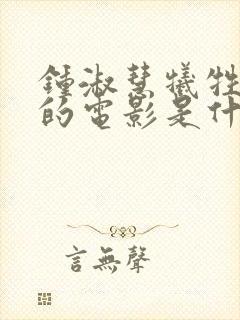 鍾淑慧犧牲
的電影是什
言無聲